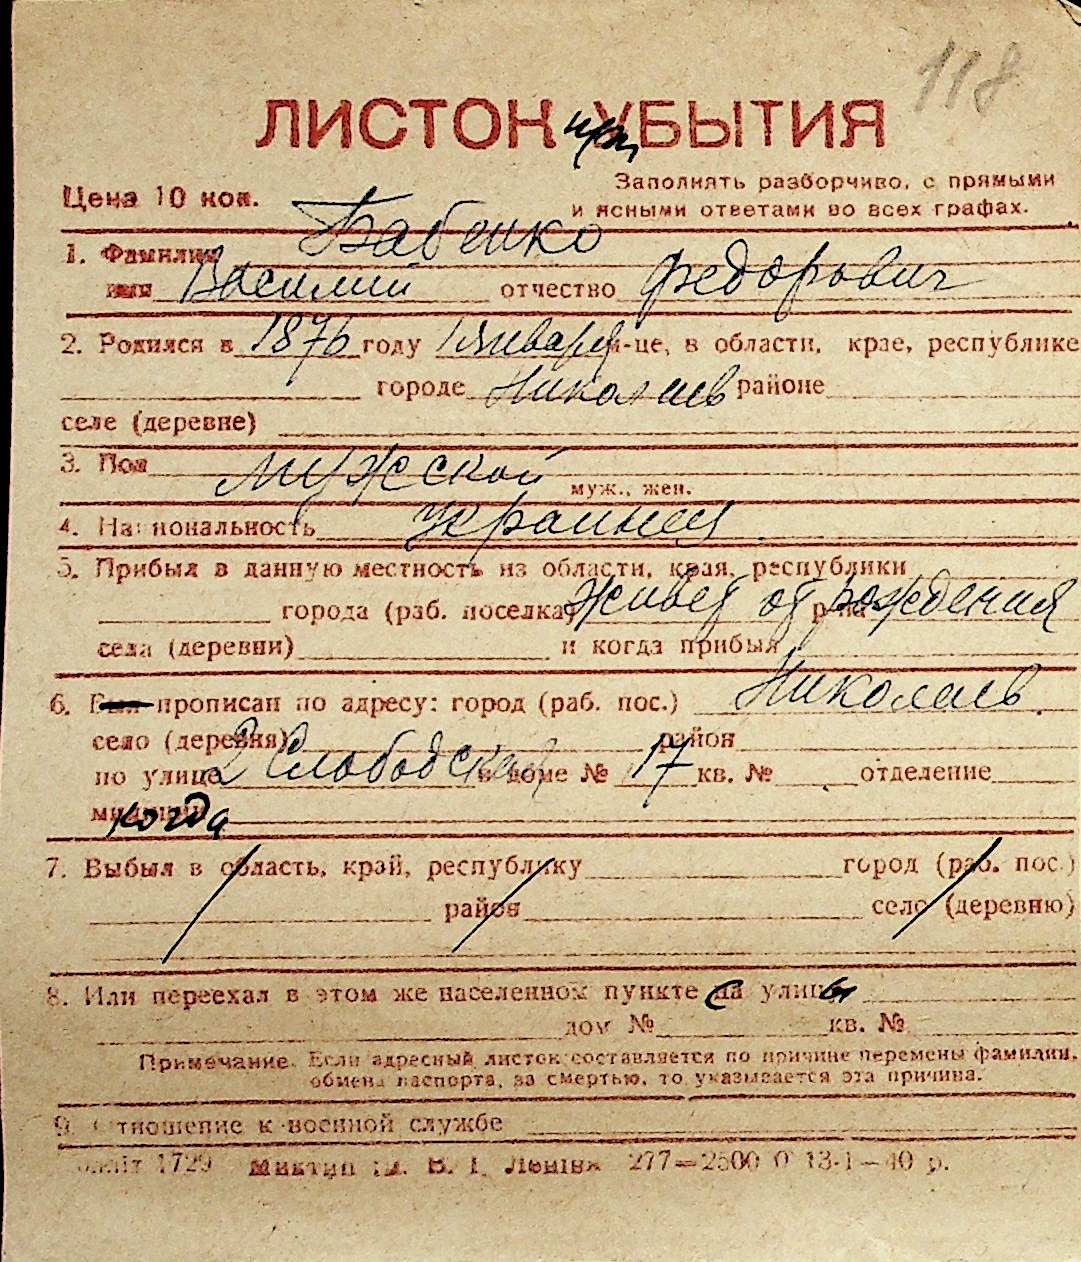 118
ЛИСТОК при УБЫТИЯ
Цена 10 коп.
Заполнять разборчиво, с прямыми
и ясными ответами во всех графах.
1. Фамилия Бабенко
имя Василий отчество Федорович
2. Родился в 1876 году 1 января м-це, в области, крае, республике
городе Николаев районе
селе (деревне)
3. Пол мужской муж., жен.
4. Национальность украинец
5. Прибыл в данную местность из области, края, республики
города (раб. поселка) р-на живет от рождения
села (деревни) и когда прибыл
6. Был прописан по адресу: город (раб. пос.) Николаев
село (деревня) район
по улице 2 Слободская в доме № 17 кв. № отделение
милиции когда
7. Выбыл в область, край, республику город (раб. пос.)
район село (деревню)
8. Или переехал в этом же населенном пункте с на улицы
дом № кв. №
Примечание. Если адресный листок составляется по причине перемены фамилии,
обмена паспорта, за смертью, то указывается эта причина.
9. Отношение к военной службе
1729 В. І. Леніна 277—2500 0 13-1—40 р.